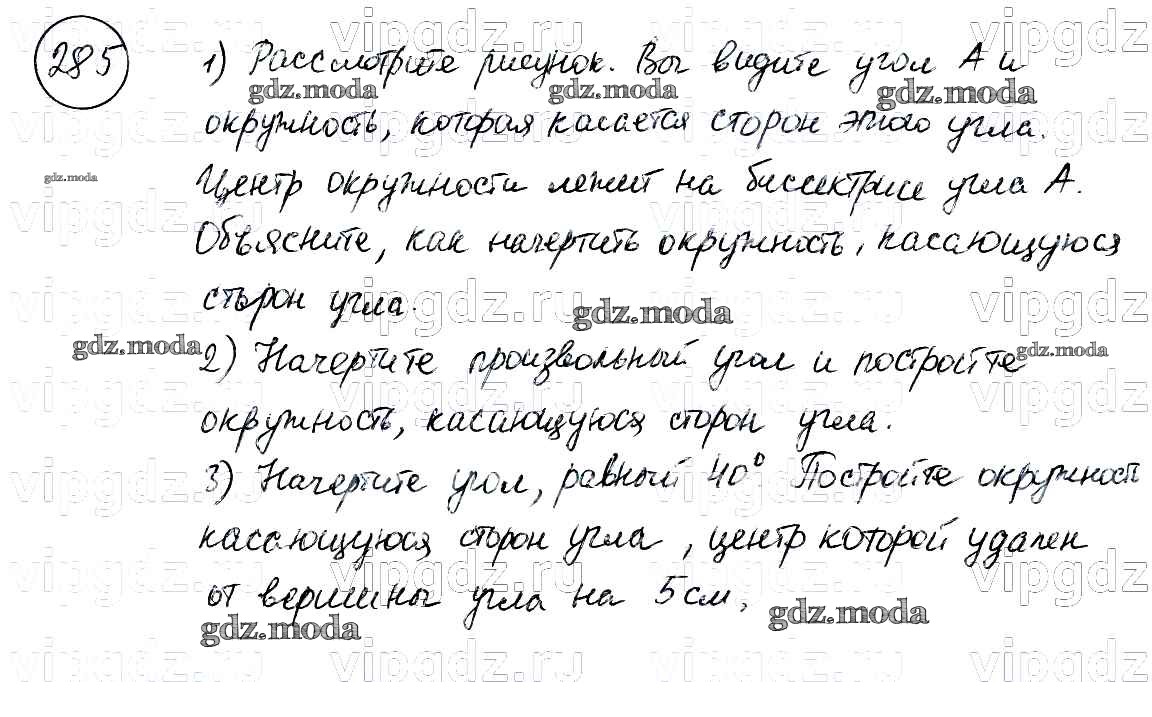 285
1) Рассмотрите рисунок. Вы видите угол А и
окружность, которая касается сторон этого угла.
Центр окружности лежит на биссектрисе угла А.
Объясните, как начертить окружность, касающуюся
сторон угла.
2) Начертите произвольный угол и постройте
окружность, касающуюся сторон угла.
3) Начертите угол, равный 40° Постройте окружность
касающуюся сторон угла, центр которой удален
от вершины угла на 5 см,
gdz.moda
vipgdz.ru